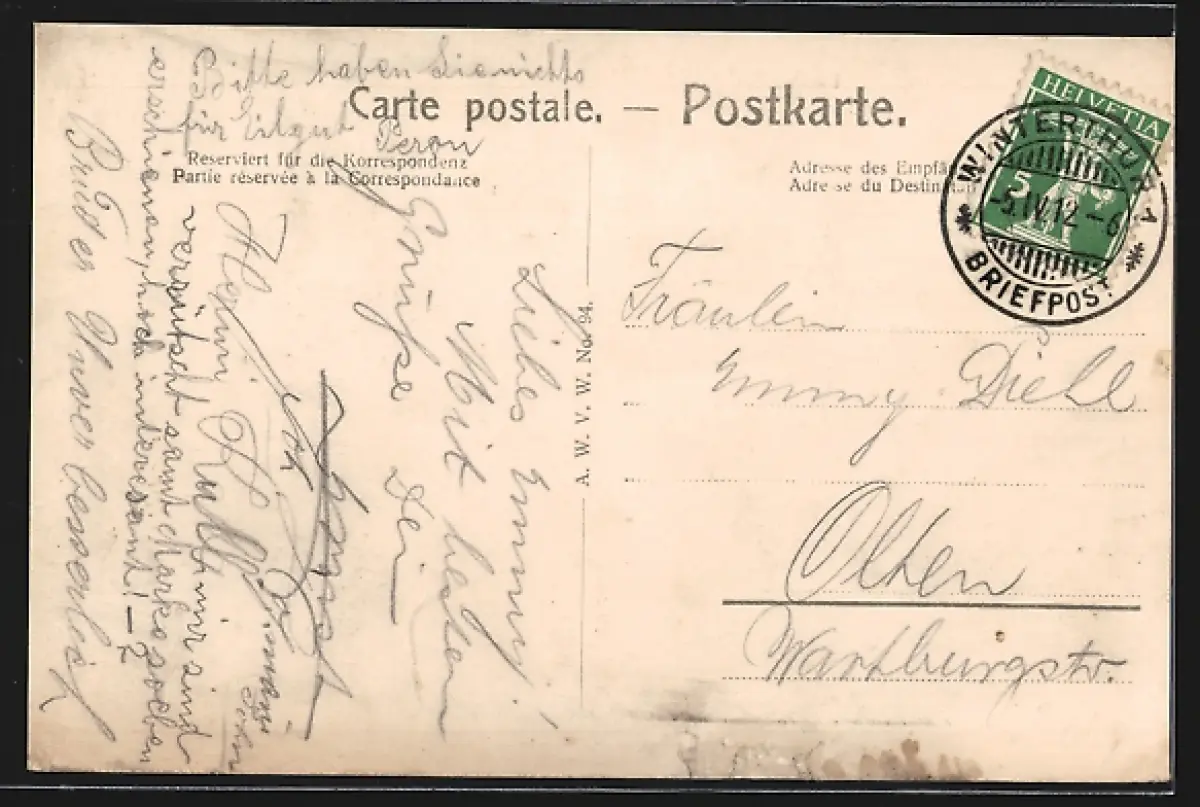 Bitte haben Sie nichts
für Eilgut Peron
Carte postale. — Postkarte.
Reserviert für die Korrespondenz
Partie réservée à la Correspondance
Adresse des Empfä
Adresse du Destinatai
HELVETIA
5
WINTERTHUR 1
-5.IV.12-6
BRIEFPOST
Liebes Emmy!
Mit besten
Grüsse
Dein
Ernst
verrutscht samt Marke soeben
erschienen, hoch interessant! – ?
Bruder Unverbesserlich
A. W. V. W. No. 94.
Fräulein
Emmy Diehl
Olten
Wartburgstr.